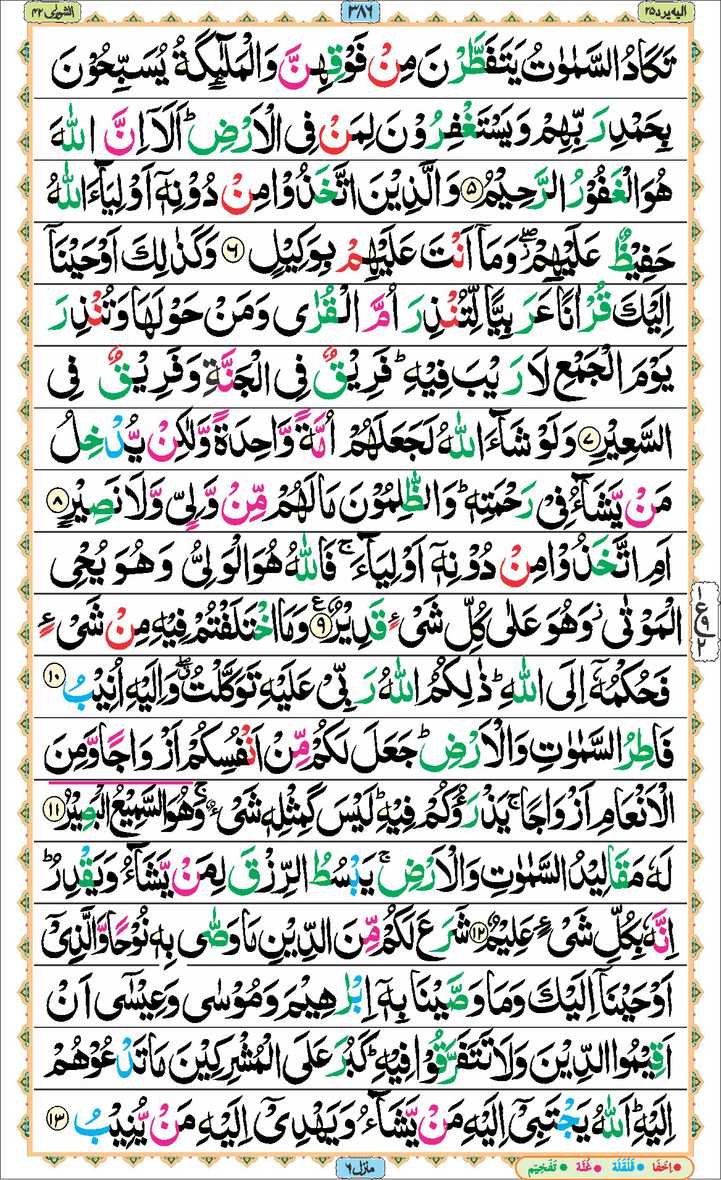 الشورٰی ٤٢
٣٨٦
الیه یرد ٢٥
تَكَادُ السَّمٰوٰتُ يَتَفَطَّرْنَ مِنْ فَوْقِهِنَّ وَالْمَلٰٓئِكَةُ يُسَبِّحُوْنَ
بِحَمْدِ رَبِّهِمْ وَيَسْتَغْفِرُوْنَ لِمَنْ فِى الْاَرْضِ ؕ اَلَاۤ اِنَّ اللّٰهَ
هُوَ الْغَفُوْرُ الرَّحِيْمُ ۝٥ وَالَّذِيْنَ اتَّخَذُوْا مِنْ دُوْنِهٖۤ اَوْلِيَآءَ اللّٰهُ
حَفِيْظٌ عَلَيْهِمْ ۖ وَمَاۤ اَنْتَ عَلَيْهِمْ بِوَكِيْلٍ ۝٦ وَكَذٰلِكَ اَوْحَيْنَاۤ
اِلَيْكَ قُرْاٰنًا عَرَبِيًّا لِّتُنْذِرَ اُمَّ الْقُرٰى وَمَنْ حَوْلَهَا وَتُنْذِرَ
يَوْمَ الْجَمْعِ لَا رَيْبَ فِيْهِ ؕ فَرِيْقٌ فِى الْجَنَّةِ وَفَرِيْقٌ فِى
السَّعِيْرِ ۝٧ وَلَوْ شَآءَ اللّٰهُ لَجَعَلَهُمْ اُمَّةً وَّاحِدَةً وَّلٰكِنْ يُّدْخِلُ
مَنْ يَّشَآءُ فِىْ رَحْمَتِهٖ ؕ وَالظّٰلِمُوْنَ مَا لَهُمْ مِّنْ وَّلِىٍّ وَّلَا نَصِيْرٍ ۝٨
اَمِ اتَّخَذُوْا مِنْ دُوْنِهٖۤ اَوْلِيَآءَ ۚ فَاللّٰهُ هُوَ الْوَلِىُّ وَهُوَ يُحْىِ
الْمَوْتٰى ۫ وَهُوَ عَلٰى كُلِّ شَىْءٍ قَدِيْرٌ ۝٩ ع وَمَا اخْتَلَفْتُمْ فِيْهِ مِنْ شَىْءٍ
١
ع ٩
٢
فَحُكْمُهٗۤ اِلَى اللّٰهِ ؕ ذٰلِكُمُ اللّٰهُ رَبِّىْ عَلَيْهِ تَوَكَّلْتُ ۖ وَاِلَيْهِ اُنِيْبُ ۝١٠
فَاطِرُ السَّمٰوٰتِ وَالْاَرْضِ ؕ جَعَلَ لَكُمْ مِّنْ اَنْفُسِكُمْ اَزْوَاجًا وَّمِنَ
الْاَنْعَامِ اَزْوَاجًا ۚ يَذْرَؤُكُمْ فِيْهِ ؕ لَيْسَ كَمِثْلِهٖ شَىْءٌ ۚ وَهُوَ السَّمِيْعُ الْبَصِيْرُ ۝١١
لَهٗ مَقَالِيْدُ السَّمٰوٰتِ وَالْاَرْضِ ۚ يَبْسُطُ الرِّزْقَ لِمَنْ يَّشَآءُ وَيَقْدِرُ ؕ
اِنَّهٗ بِكُلِّ شَىْءٍ عَلِيْمٌ ۝١٢ شَرَعَ لَكُمْ مِّنَ الدِّيْنِ مَا وَصّٰى بِهٖ نُوْحًا وَّالَّذِىْۤ
اَوْحَيْنَاۤ اِلَيْكَ وَمَا وَصَّيْنَا بِهٖۤ اِبْرٰهِيْمَ وَمُوْسٰى وَعِيْسٰٓى اَنْ
اَقِيْمُوا الدِّيْنَ وَلَا تَتَفَرَّقُوْا فِيْهِ ؕ كَبُرَ عَلَى الْمُشْرِكِيْنَ مَا تَدْعُوْهُمْ
اِلَيْهِ ؕ اَللّٰهُ يَجْتَبِىْۤ اِلَيْهِ مَنْ يَّشَآءُ وَيَهْدِىْۤ اِلَيْهِ مَنْ يُّنِيْبُ ۝١٣
منزل ٦
اِخفَا • قَلْقَلَة • غُنَّة • تَفْخِيْم •